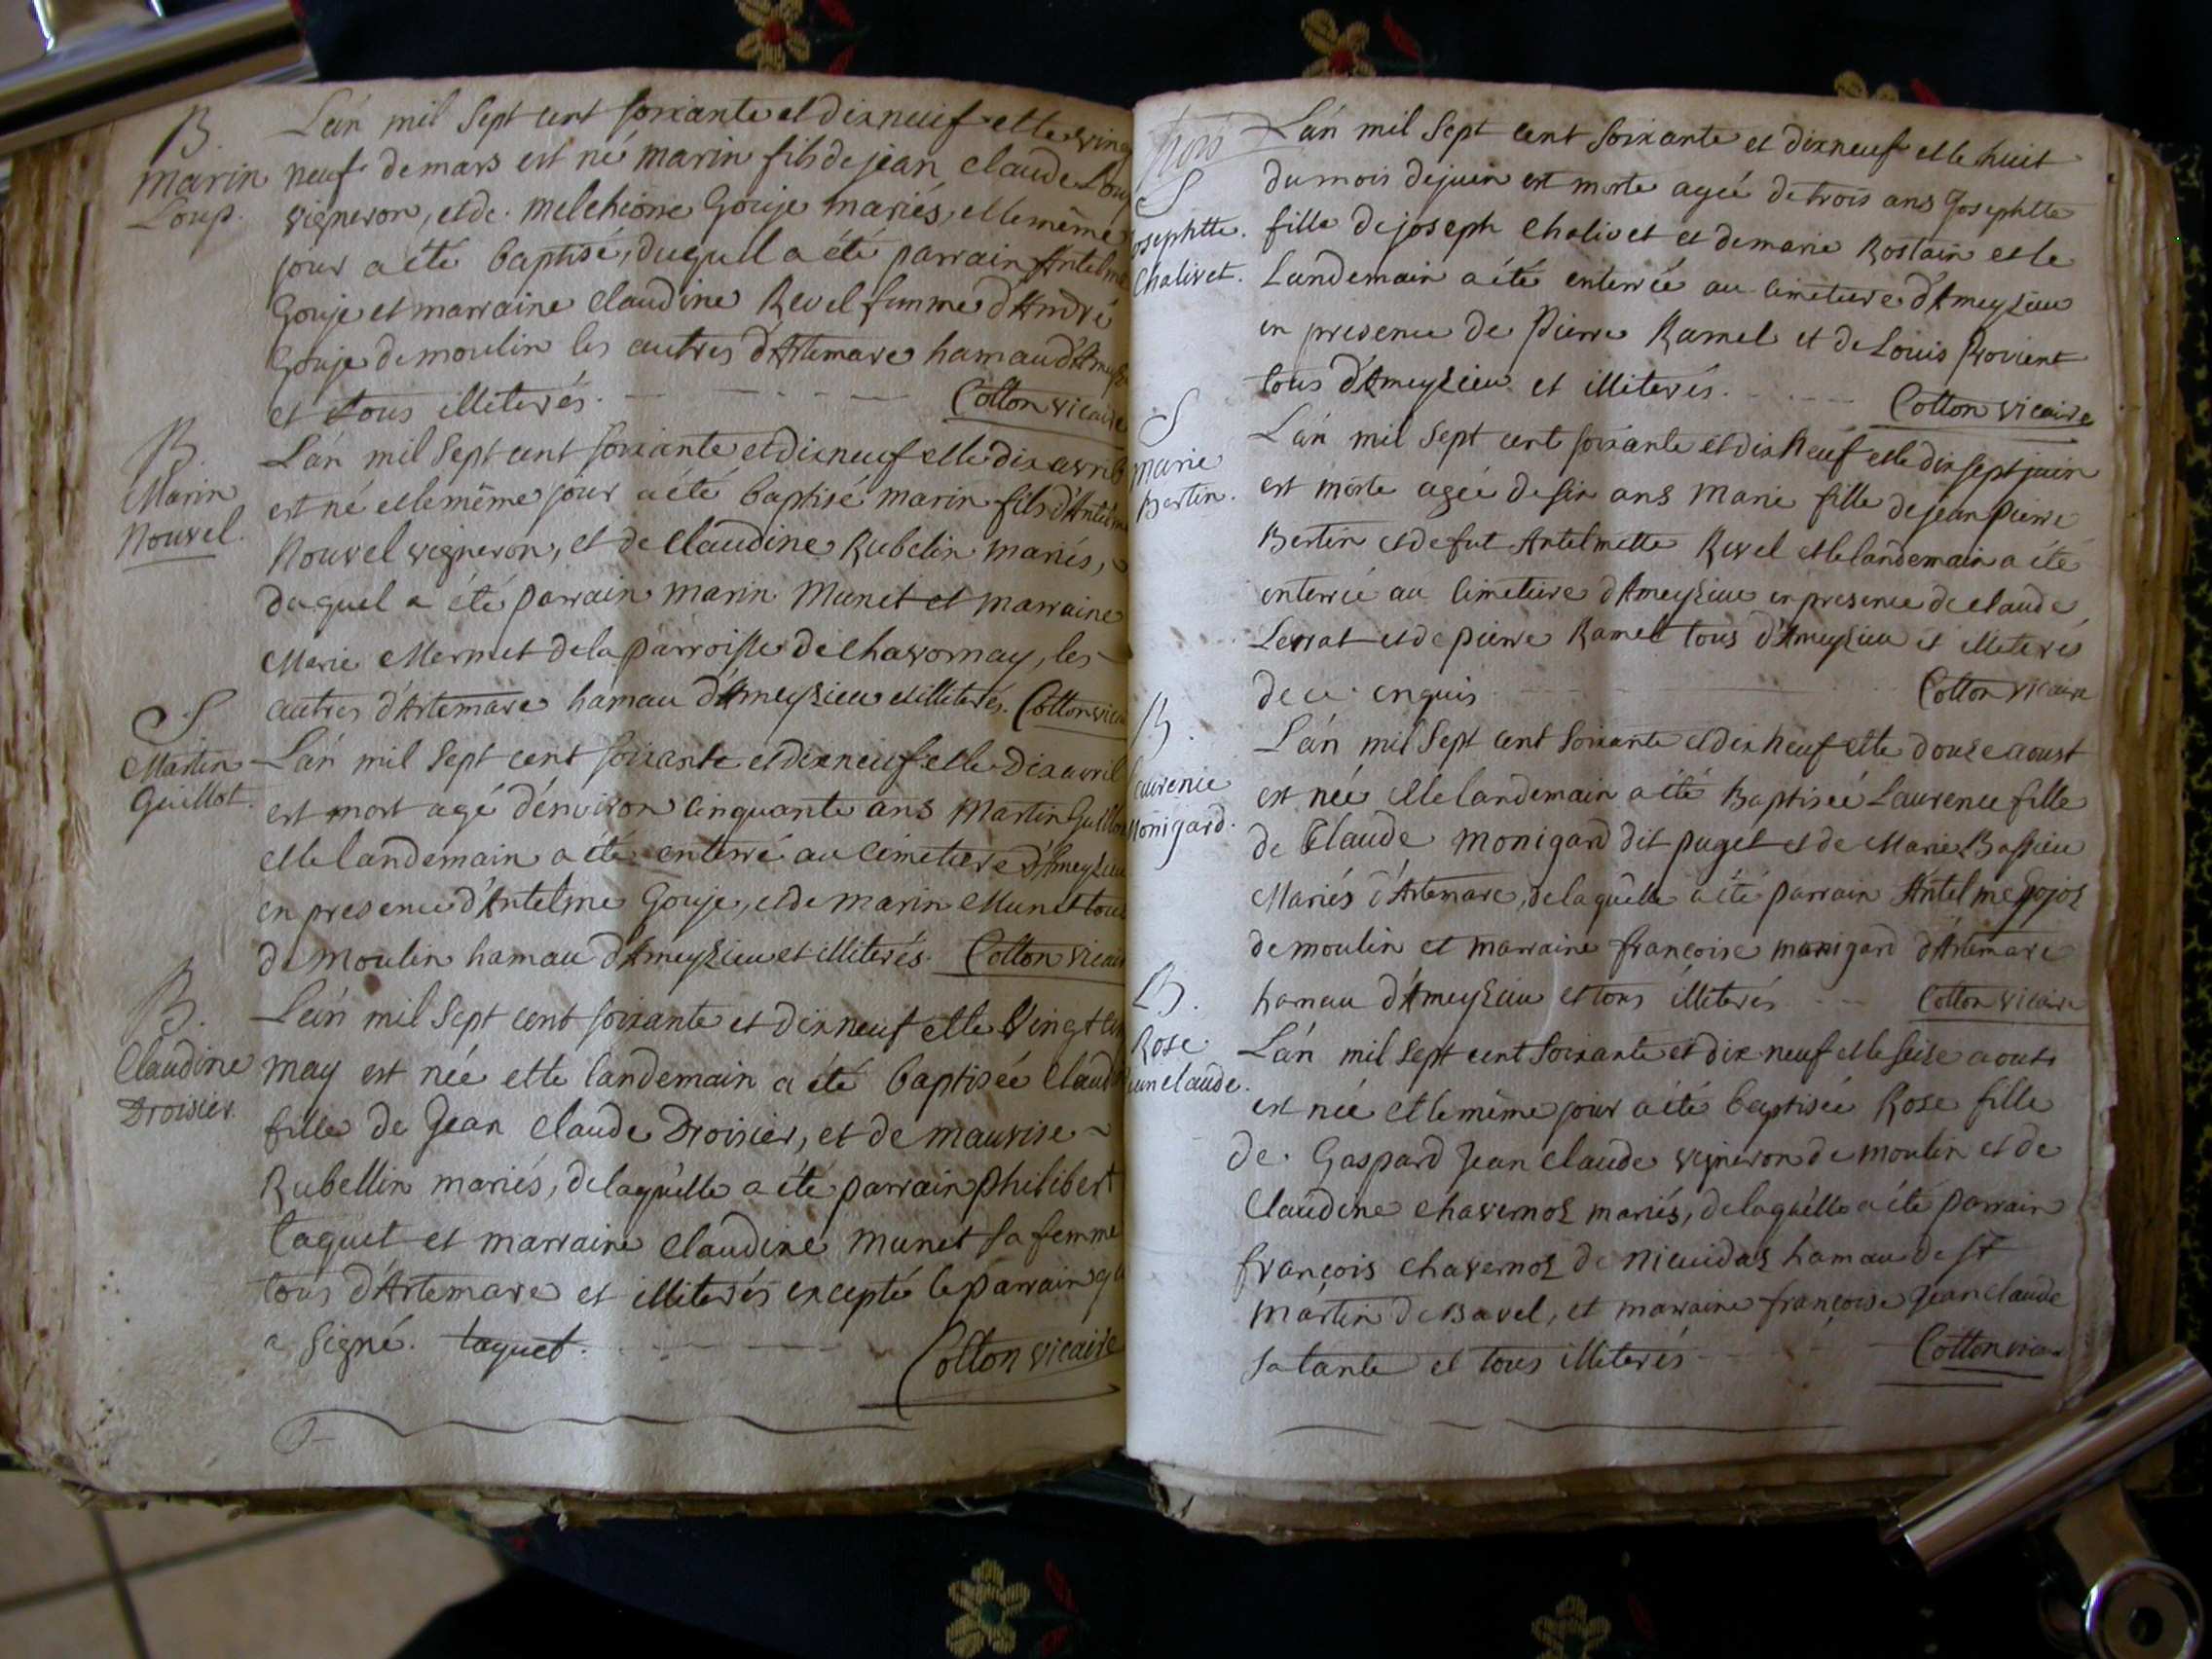 B
Marin
Loup.
L'án mil Sept cent soixante et dixneuf et le ving
neuf de mars est né marin fils de jean claude Loup
vigneron, et de melchione Gouje mariés, et le même
jour a été baptisé, duquel a été parrain Antelme
Gouje et marraine claudine Revel femme d'André
Gouje de moulin les autres d'Artemare hamau d'Ameyz
et tous illiterés. Cotton vicaire
B
Marin
Nouvel.
L'án mil Sept cent soixante et dixneuf et le dix avril
est né et le même jour a été baptisé marin fils d'Antelme
Nouvel vigneron, et de claudine Rubelin mariés,
duquel a été parrain marin Munet et marraine
Marie Mermet de la parroisse de chavornay, les
autres d'Artemare hamau d'Ameyzieu et illiterés. Cotton vicai
S
Martin
Guillot.
L'án mil Sept cent soixante et dixneuf et le dix avril
est mort agé d'énviron cinquante ans Martin Guillot
et le landemain a été enterré au cimetiere d'Ameyzieu
en presence d'Antelme Gouje, et de marin Munet tous
de moulin hamau d'Ameyzieu et illiterés. Cotton vicair
B.
Claudine
Droisier.
L'án mil Sept cent soixante et dixneuf et le vingt
may est née et le landemain a été baptisée claud
fille de Jean claude Droisier, et de maurise
Rubellin mariés, de laquélle a été parrain philibert
taquet et marraine claudine munet sa femme
tous d'Artemare et illiterés excepté le parrain qu
a signé. taquet. Cotton vicaire
S
osephtte.
Chalivet.
L'án mil Sept cent soixante et dixneuf et le huit
du mois de juin est morte agée de trois ans Josephtte
fille de joseph chalivet et de marie Rostain et le
Landemain a été enterrée au cimetiere d'Ameyzieu
en presence de Pierre Ramel et de Louis Provient
tous d'Ameyzieu et illiterés. Cotton vicaire
S
marie
Bertin.
L'án mil Sept cent soixante et dixneuf et le dix sept juin
est morte agée de six ans Marie fille de jean pierre
Bertin et de fut Antelmette Revel et le landemain a été
enterrée au cimetiere d'Ameyzieu en presence de claude
Lerrat et de pierre Ramel tous d'Ameyzieu et illeterés
de ce enquis Cotton vicaire
B.
Laurence
Monigard.
L'án mil Sept cent soixante et dixneuf et le douze aoust
est née et le landemain a été Baptisée Laurence fille
de Claude monigard dit puget et de Marie Bassieu
Mariés d'Artemare, de laquélle a été parrain Antelme Gojoz
de moulin et marraine françoise monigard d'Artemare
hamau d'Ameyzieu et tous illiterés Cotton vicaire
B.
Rose
jean claude.
L'án mil Sept cent soixante et dix neuf et le seise aoust
est née et le même jour a été baptisée Rose fille
de Gaspard Jean claude vigneron de moulin et de
Claudine chavernoz mariés, de laquélle a été parrain
françois chavernoz de hamau de st
martin de Bavel, et marraine françoise Jean claude
sa tante et tous illiterés Cotton vicai